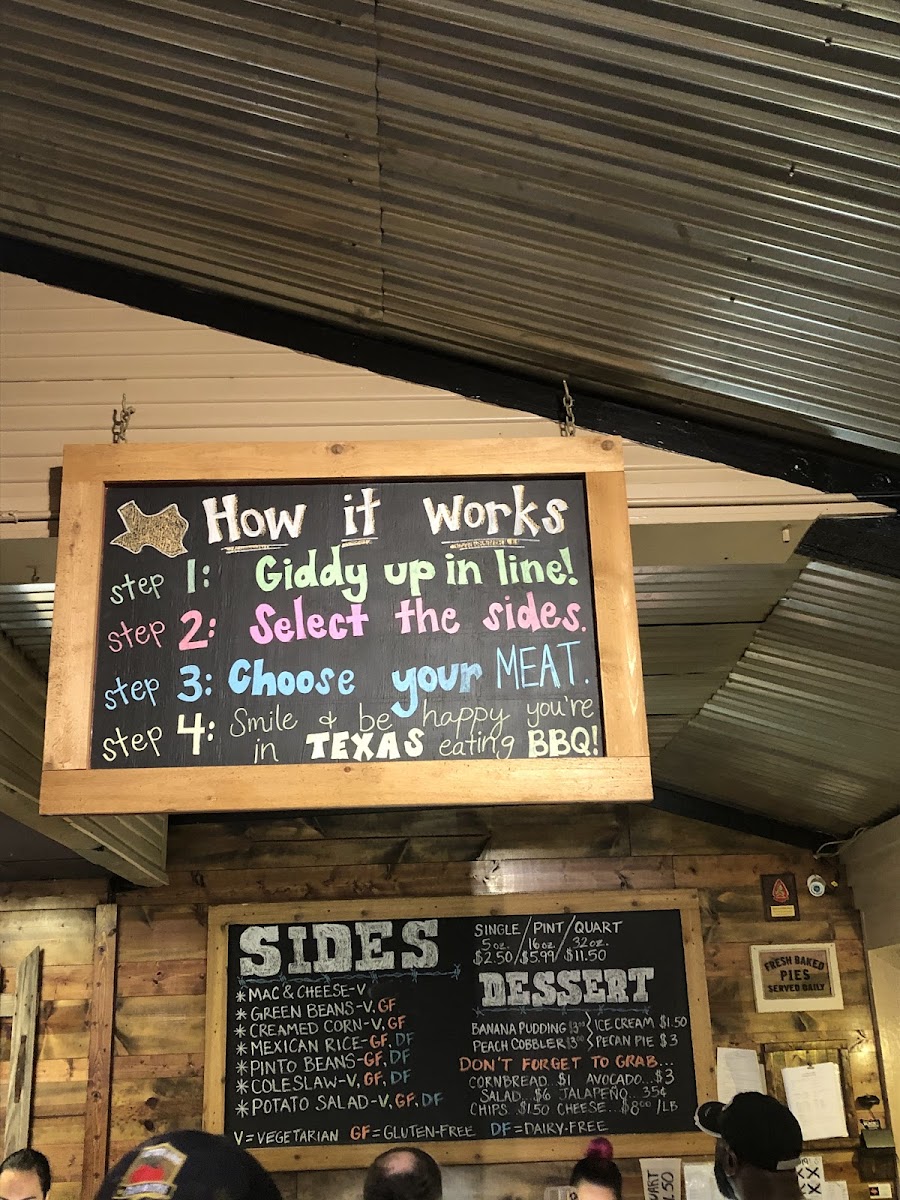 How it works
step 1: Giddy up in line!
step 2: Select the sides.
step 3: Choose your MEAT.
step 4: Smile & be happy you're
in TEXAS eating BBQ!
SIDES
*MAC & CHEESE-V
*GREEN BEANS-V, GF
*CREAMED CORN-V, GF
*MEXICAN RICE-GF, DF
*PINTO BEANS-GF, DF
*COLESLAW-V, GF, DF
*POTATO SALAD-V, GF, DF
V=VEGETARIAN GF=GLUTEN-FREE DF=DAIRY-FREE
SINGLE/PINT/QUART
5oz. 16oz. 32oz.
$2.50/$5.99/$11.50
DESSERT
BANANA PUDDING ICE CREAM $1.50
PEACH COBBLER PECAN PIE $3
DON'T FORGET TO GRAB...
CORNBREAD...$1 AVOCADO...$3
SALAD...$6 JALAPEÑO...35¢
CHIPS...$1.50 CHEESE...$8.00/LB
FRESH BAKED
PIES
SERVED DAILY